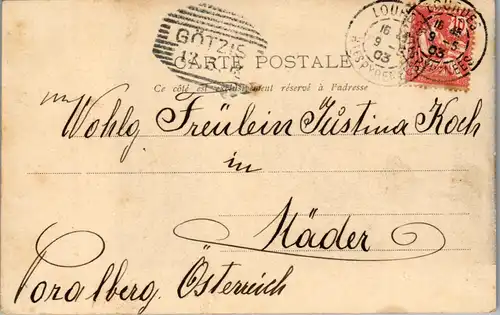 GÖTZIS
CARTE POSTALE
Ce côté est exclusivement réservé à l'adresse
LOURDES
16
9 - 5
03
LOURDES
16
9 - 5
03
Wohlg Freülein Jüstina Koch
in
Mäder
Voralberg. Österreich